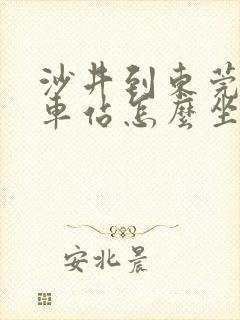 沙井到東莞
車佔怎麼坐
安北晨